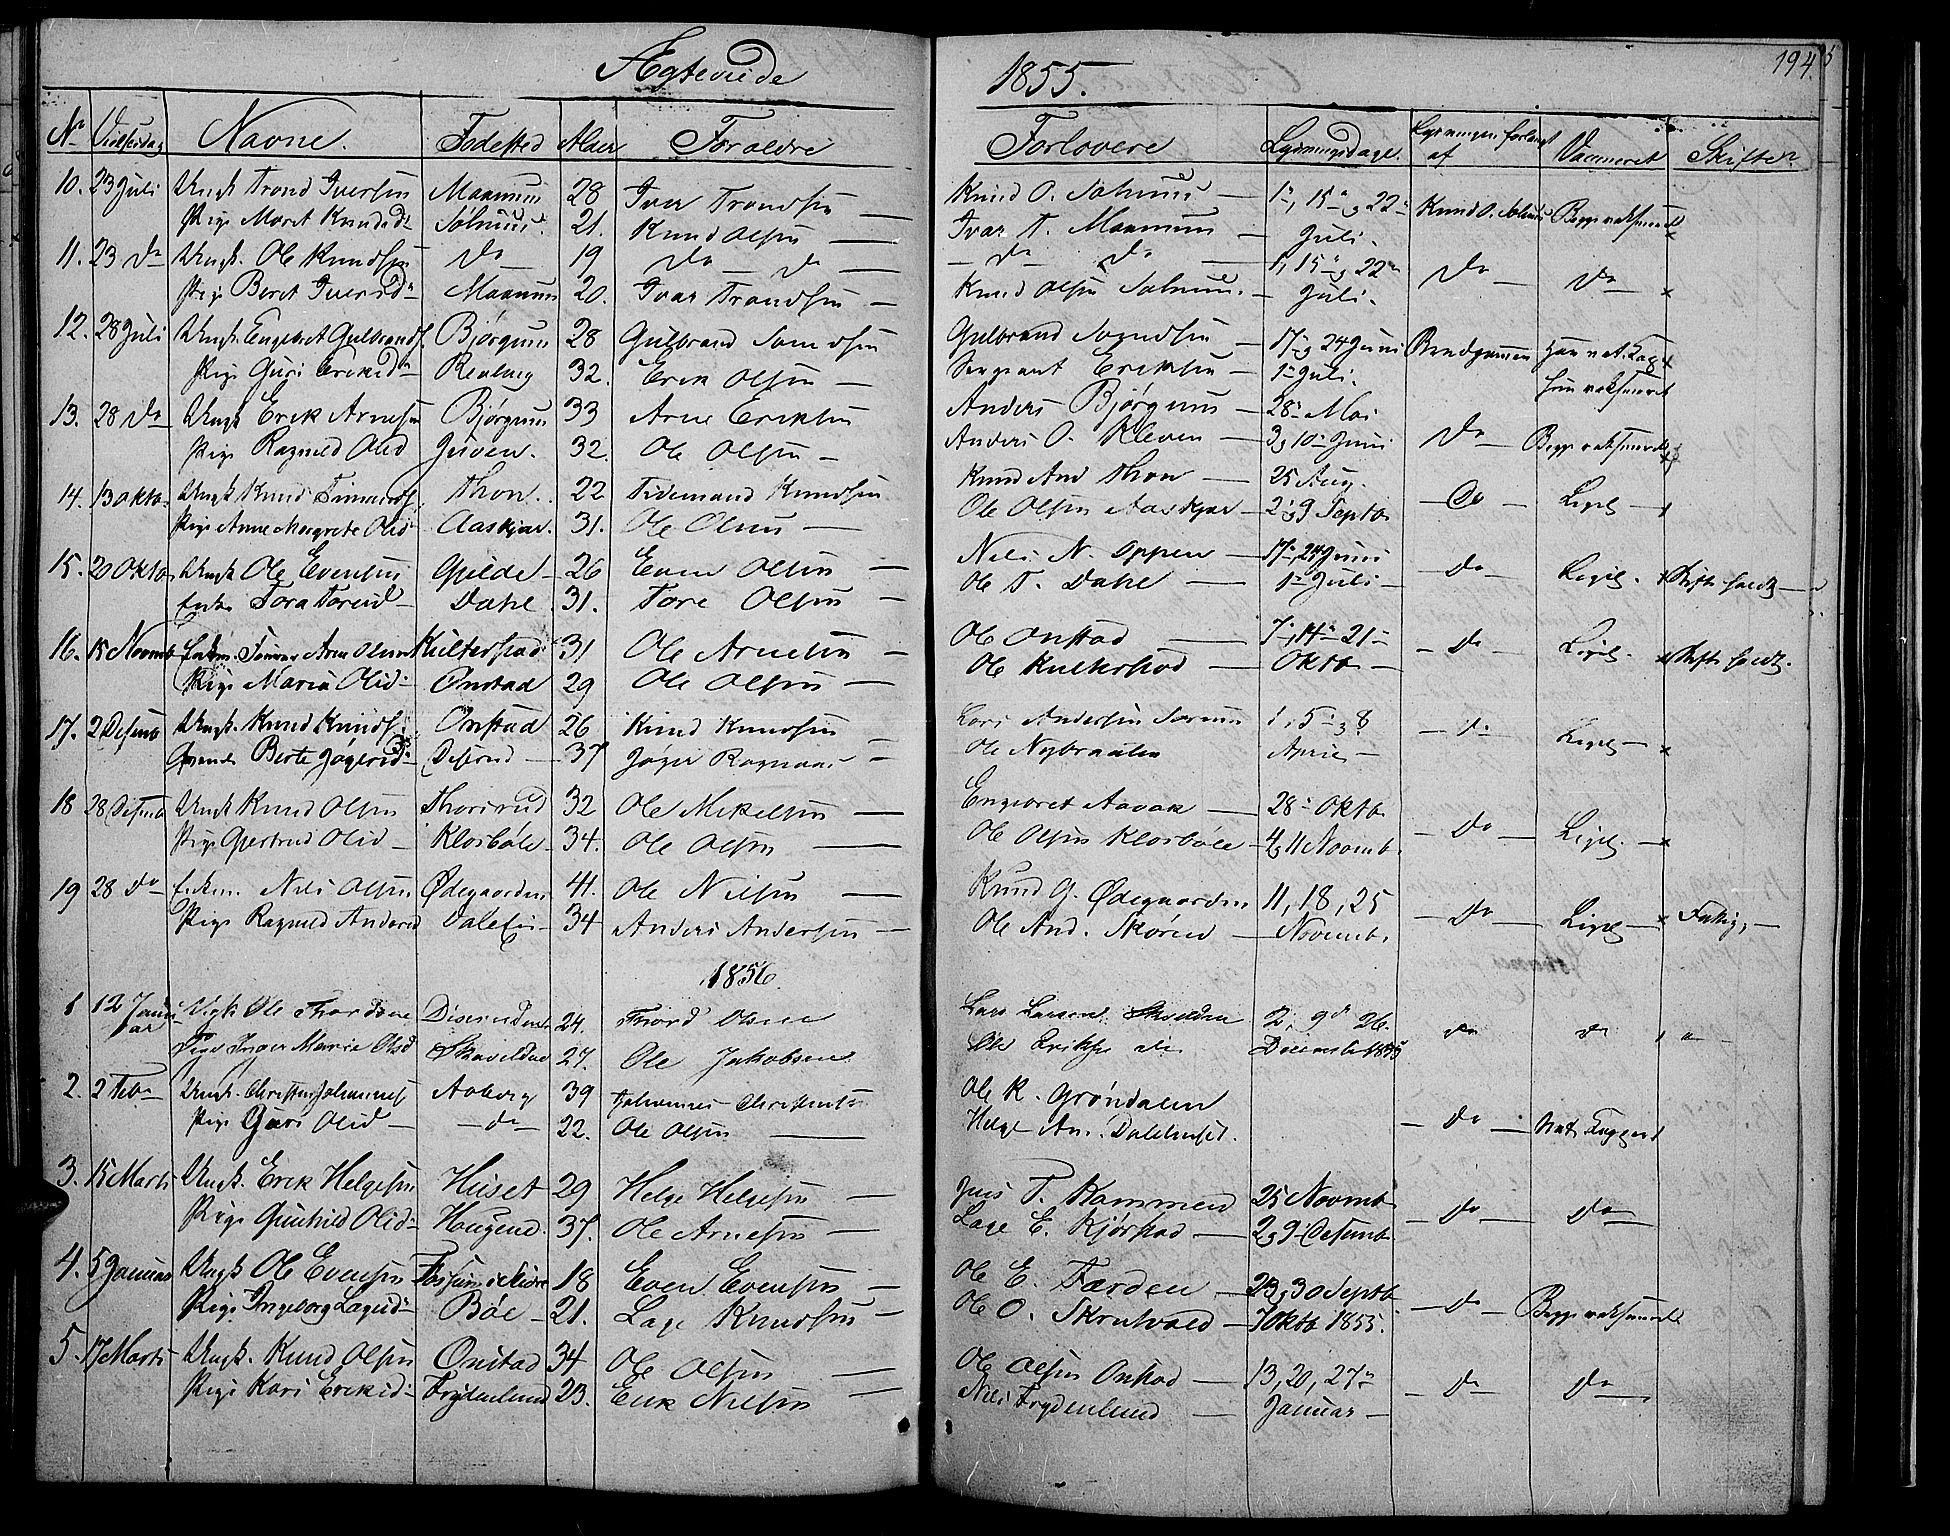 Ægteviede 1855. 194
Nr Vielsesdag Navne. Fødested Alder Foraldre Forlovere Lysningsdage. Lysningen forlangt af Vaccineret Skiften
10. 23 Juli Ungk Trond Iversen Maanum 28 Ivar Trondsen — Knud O. Solnuus — 1ste, 15de, 22de Knud O. Solnuus Begge vaksinerede
Pige Maret Knudsd. Solnuus. 21. Knud Olsen — Ivar T. Maanum — Juli.
11. 23 do Ungk. Ole Knudsen do 19 do — do — — do do — 1, 15 & 22de do — do —
Pige Beret Iversd. Maanum 20. Ivar Trondsen — Knud Olsen Solnuus. — Juli.
12. 28 Juli Ungk. Engebret Gulbrands. Bjørgum 28 Gulbrand — 17 & 24 Juni Brudgommen Han nat. Kop.
Pige Guri Eriksd. 32. Erik Olsen — Sergeant Eriksen — 1ste Juli. Hun vaksineret
13. 28 do Ungk Erik Arnesen Bjørgum 33 Arne Eriksen Anders Bjørgum — 28de Mai
Pige Ragnild Olsd 32. Ole Olsen — Anders O. Kleven — 3 & 10de Juni do — Begge vaksinerede
14. 13 Oktb. Ungk Knud Thon. 22 Tidemand Knudsen Knud And Thon — 25 Aug.
Pige Anne Margrete Olsd Aaskjær. 31. Ole Olsen — Ole Olsen Aaskjær — 2 & 9 Septb. — do — Ligel —
15. 20 Oktb. Ungk Ole Evensen Gjelde — 26 Even Olsen — Nels N. Oppen — 17de, 24 Juni
Enke Tora Toresd — Dahl 31. Tore Olsen — Ole T. Dahl — 1ste Juli — do — Ligel. Skifte holdt —
16. 15 Novmb Enkm. Arne Olsen Kulterstad 31 Ole Arnesen — Ole Onstad — 7de, 14de 21de
Pige Maria Olsd. Onstad 29 Ole Olsen — Ole Kulterstad — Oktb — — do — Ligel. Skifte holdt.
17. 2 Desemb Ungk. Knud Knuds. Onstad 26 Knud Knudsen — Lars Andersen 1, 5de & 8
Berte Jøgersd. — 37 Jøger — Ole Nybraaten April — — do — Ligel —
18 28 Desemb Ungk Knud Olsen Thorsrud 32 Ole Mikelsen — Engebret Aavak — 28de Oktb.
Pige Gjertrud Olsd — Klosbøle — 34. Ole Olsen — Ole Olsen Klosbøle — 4 & 11 Novmb. — do — Ligel. —
19 28 do Enkm. Nils Olsen Ødegaarden 41. Ole Nilsen — Knud G. Ødegaarden 11, 18, 25
Pige Ragnild Andersd 34 Anders Andersen — Ole And. Skøren — Novemb. — do — Ligel — Fattig, —
1856.
1 12 Januar Ungk Ole Thordsen 24. Thord Olsen Lars Larsen 2, 9de 26.
Pige Inger Marie Olsd 27. Ole Jakobsen Ole Eriks. Decemb 1855 do do
2. 2 Feb. Ungk. Christen Johannes. Aaberg 39 Johannes Christensen Ole K. Grøndalen
Pige Guri Olsd — — do — 22. Ole Olsen — Helge An. — do — Nat. Kopper
3. 15 Marts Ungk. Erik Helgesen Huset 29 Helge Helgesen — Jens T. Kammen 25 Novmb
Pige Gunhild Olsd. Haugend. 37. Ole Arnesen — Lage E. Kjørstad — 2 & 9 Desemb — do — do —
4. 5 Januar Ungk Ole Evensen 18 Even Evensen — Ole E. Færden — 23, 30 Septb.
Pige Ingeborg Lagesd. Bøe — 21. Lage Knudsen — Ole O. Skrutvold — 7 Oktb 1855. — do — Begge vaksinerede
5. 17 Marts Ungk. Knud Olsen Onstad 34 Ole Olsen — Ole Olsen Onstad — 13, 20, 27de
Pige Kari Eriksd. Frydenlund 23. Erik Nilsen — Nils Frydenlund — Januar — — do — do —